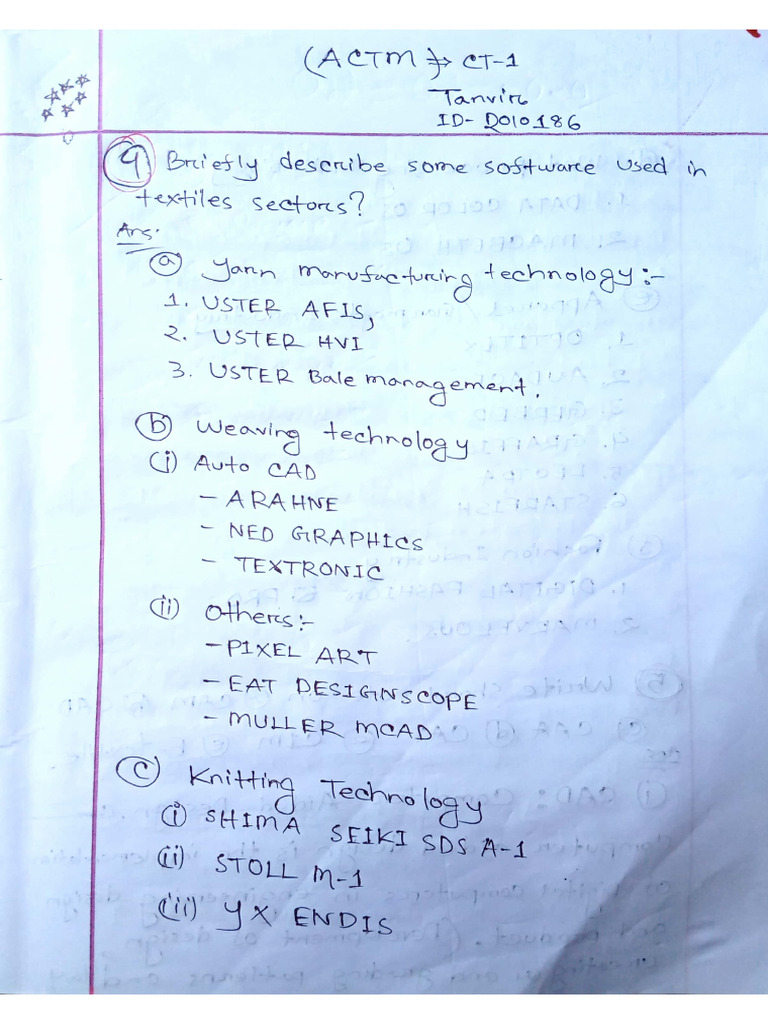 (ACTM) → CT-1
Tanvir
ID- D010186
4 Briefly describe some software used in
textiles sectors?
Ans:
a Yarn manufacturing technology:-
1. USTER AFIS,
2. USTER HVI
3. USTER Bale management.
b Weaving technology
(i) Auto CAD
- ARAHNE
- NED GRAPHICS
- TEXTRONIC
(ii) Others:-
- PIXEL ART
- EAT DESIGNSCOPE
- MULLER MCAD
c Knitting Technology
(i) SHIMA SEIKI SDS A-1
(ii) STOLL M-1
(iii) YX ENDIS